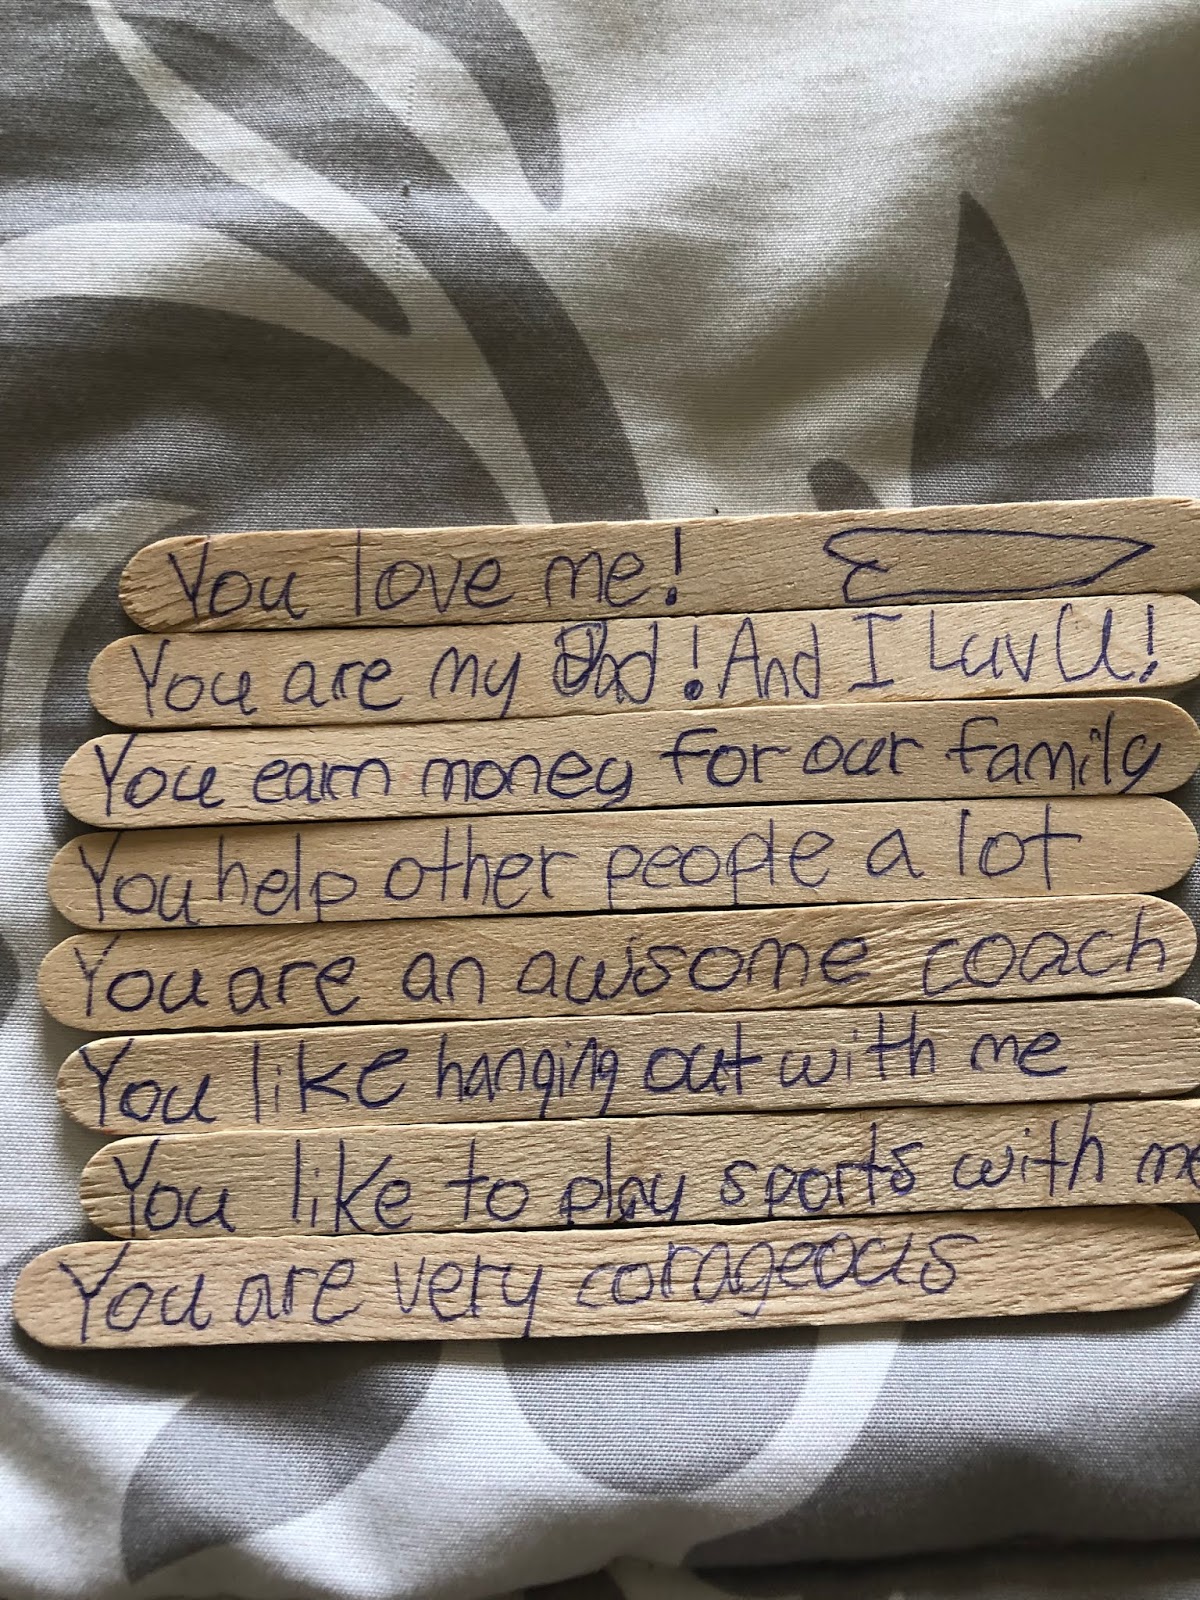 You love me!
You are my Dad! And I Luv U!
You earn money for our family
You help other people a lot
You are an awsome coach
You like hanging out with me
You like to play sports with me
You are very corageous